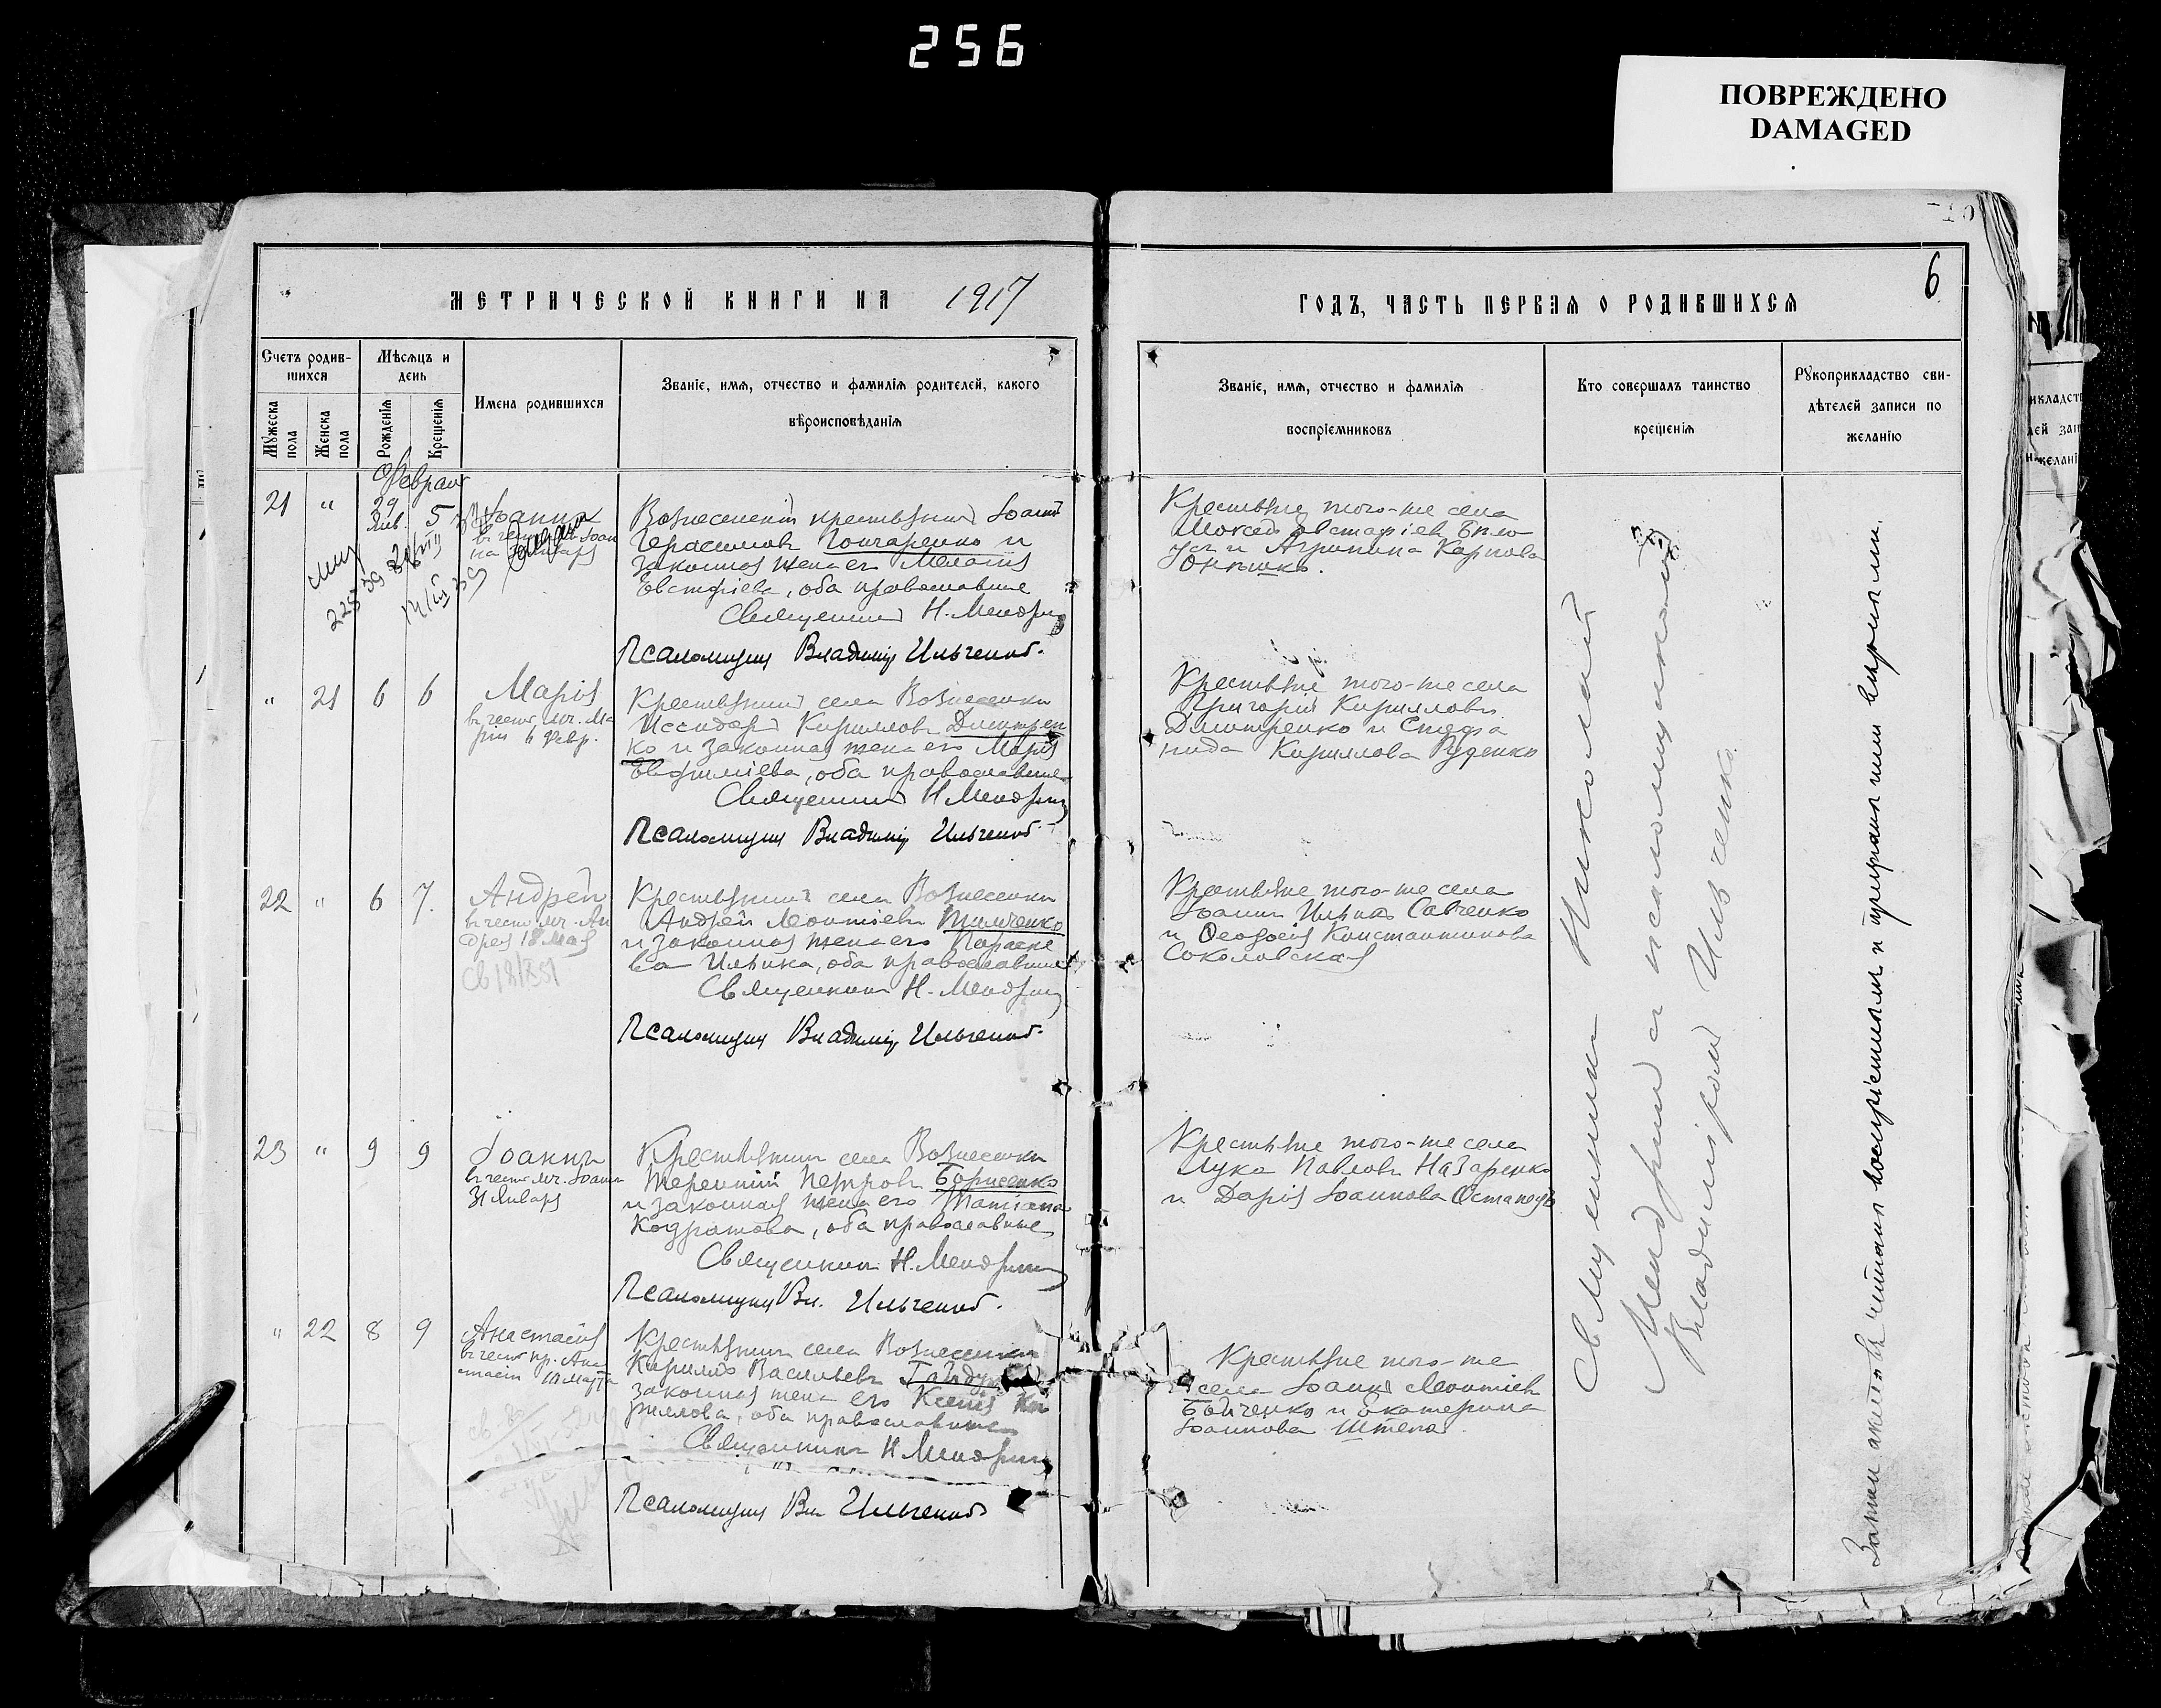 256
ПОВРЕЖДЕНО
DAMAGED
6
МЕТРИЧЕСКОЙ КНИГИ НА 1917
ГОДЪ, ЧАСТЬ ПЕРВАЯ О РОДИВШИХСЯ
Счетъ родив-
шихся
Мѣсяцъ и
день
Мужеска
пола
Женска
пола
Рожденія
Крещенія
Имена родившихся
Званіе, имя, отчество и фамилія родителей, какого
вѣроисповѣданія
Званіе, имя, отчество и фамилія
воспріемниковъ
Кто совершалъ таинство
крещенія
Рукоприкладство сви-
дѣтелей записи по
желанію
Феврал
21 " 29 Янв. 5
Іоаннъ
Вознесенскій крестьянинъ Іоаннъ
Герасимовъ Гончаренко и
законная жена его Мелания
Евстафіева, оба православные
Священникъ Н. Мендрин
Псаломщикъ Владиміръ Ильченко.
Крестьяне того-же села
Моисей Евстафіевъ Бѣло
усъ и Агрипина Карпова
Онышко.
" 21 6 6
Марія
въ честь мч. Ма
ріи 6 Февр.
Крестьянинъ села Вознесенки
Исидоръ Кирилловъ Дмитрен
ко и законная жена его Марія
Евфиміева, оба православные
Священникъ Н. Мендрин
Псаломщикъ Владиміръ Ильченко.
Крестьяне того-же села
Григорій Кирилловъ
Дмитренко и Стефа
нида Кириллова Руденко
22 " 6 7.
Андрей
въ честь мч. Ан
дрея 18 Мая
Крестьянинъ села Вознесенки
Андрей Леонтіевъ Тимченко
и законная жена его Параске
ва Ильина, оба православные
Священникъ Н. Мендрин
Псаломщикъ Владиміръ Ильченко.
Крестьяне того-же села
Іоаннъ Ильинъ Савченко
и Ѳеодосія Константинова
Соколовская
23 " 9 9
Іоаннъ
въ честь мч. Іоанна
31 Января
Крестьянинъ села Вознесенки
Терентій Петровъ Борисенко
и законная жена его Татіана
Кодратова, оба православные
Священникъ Н. Мендрин
Псаломщикъ Вл. Ильченко.
Крестьяне того-же села
Лука Павловъ Назаренко
и Дарія Іоаннова Остапецъ
" 22 8 9
Анастасія
въ честь пр. Ана
стасіи 10 Марта
Крестьянинъ села Вознесенки
Кириллъ Васильевъ Гайдук
законная жена его Ксенія Ки
риллова, оба православные
Священникъ Н. Мендрин
Псаломщикъ Вл. Ильченко
Крестьяне того-же
села Іоаннъ Леонтіевъ
Бойченко и Екатерина
Іоаннова Штепа.
Священникъ Николай
Мендрин съ псаломщикомъ
Владиміромъ Ильченко